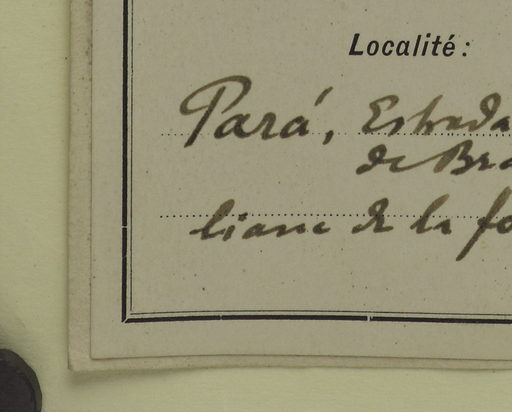 Localité:
Pará, Estrada
de Bra
liane de la fo